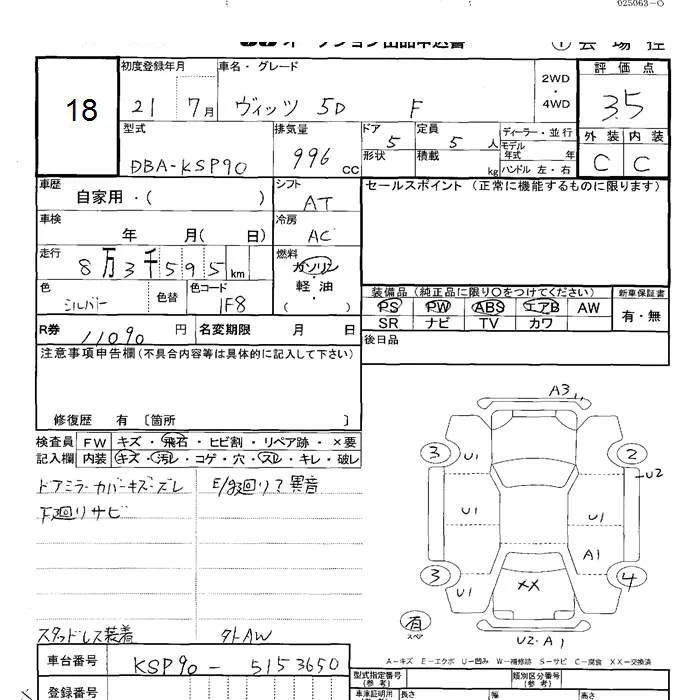 025063-0
オークション出品申込書 ① 会場控
18
初度登録年月 車名・グレード 2WD・4WD 評価点
21 7月 ヴィッツ 5D F 3.5
型式 排気量 ドア 定員 ディーラー・並行 外装 内装
DBA-KSP90 996 cc 5 5人 モデル年式 年 C C
形状 積載 kg ハンドル 左・右
車歴 自家用・( ) シフト AT セールスポイント(正常に機能するものに限ります)
車検 年 月( 日) 冷房 AC
走行 8万3千595km 燃料 ガソリン・軽油・( )
色 シルバー 色替 色コード 1F8
装備品(純正品に限り○をつけてください) 新車保証書
PS PW ABS エアB AW 有・無
SR ナビ TV カワ
R券 11090円 名変期限 月 日 後日品
注意事項申告欄(不具合内容等は具体的に記入して下さい)
修復歴 有 〔箇所 〕
検査員 FW キズ・飛石・ヒビ割・リペア跡・×要
記入欄 内装 キズ・汚レ・コゲ・穴・スレ・キレ・破レ
ドアミラーカバーキズ・ズレ E/g廻り?異音
下廻りサビ
A3
3 U1 2 U2
U1 U1
A1
3 U1 XX 4
有 スペア
U2・A1
スタッドレス装着 外AW
A-キズ E-エクボ U-凹み W-補修跡 S-サビ C-腐食 XX-交換済
車台番号 KSP90-5153650
型式指定番号(参考) 類別区分番号(参考)
登録番号 車庫証明用(参考) 長さ 幅 高さ